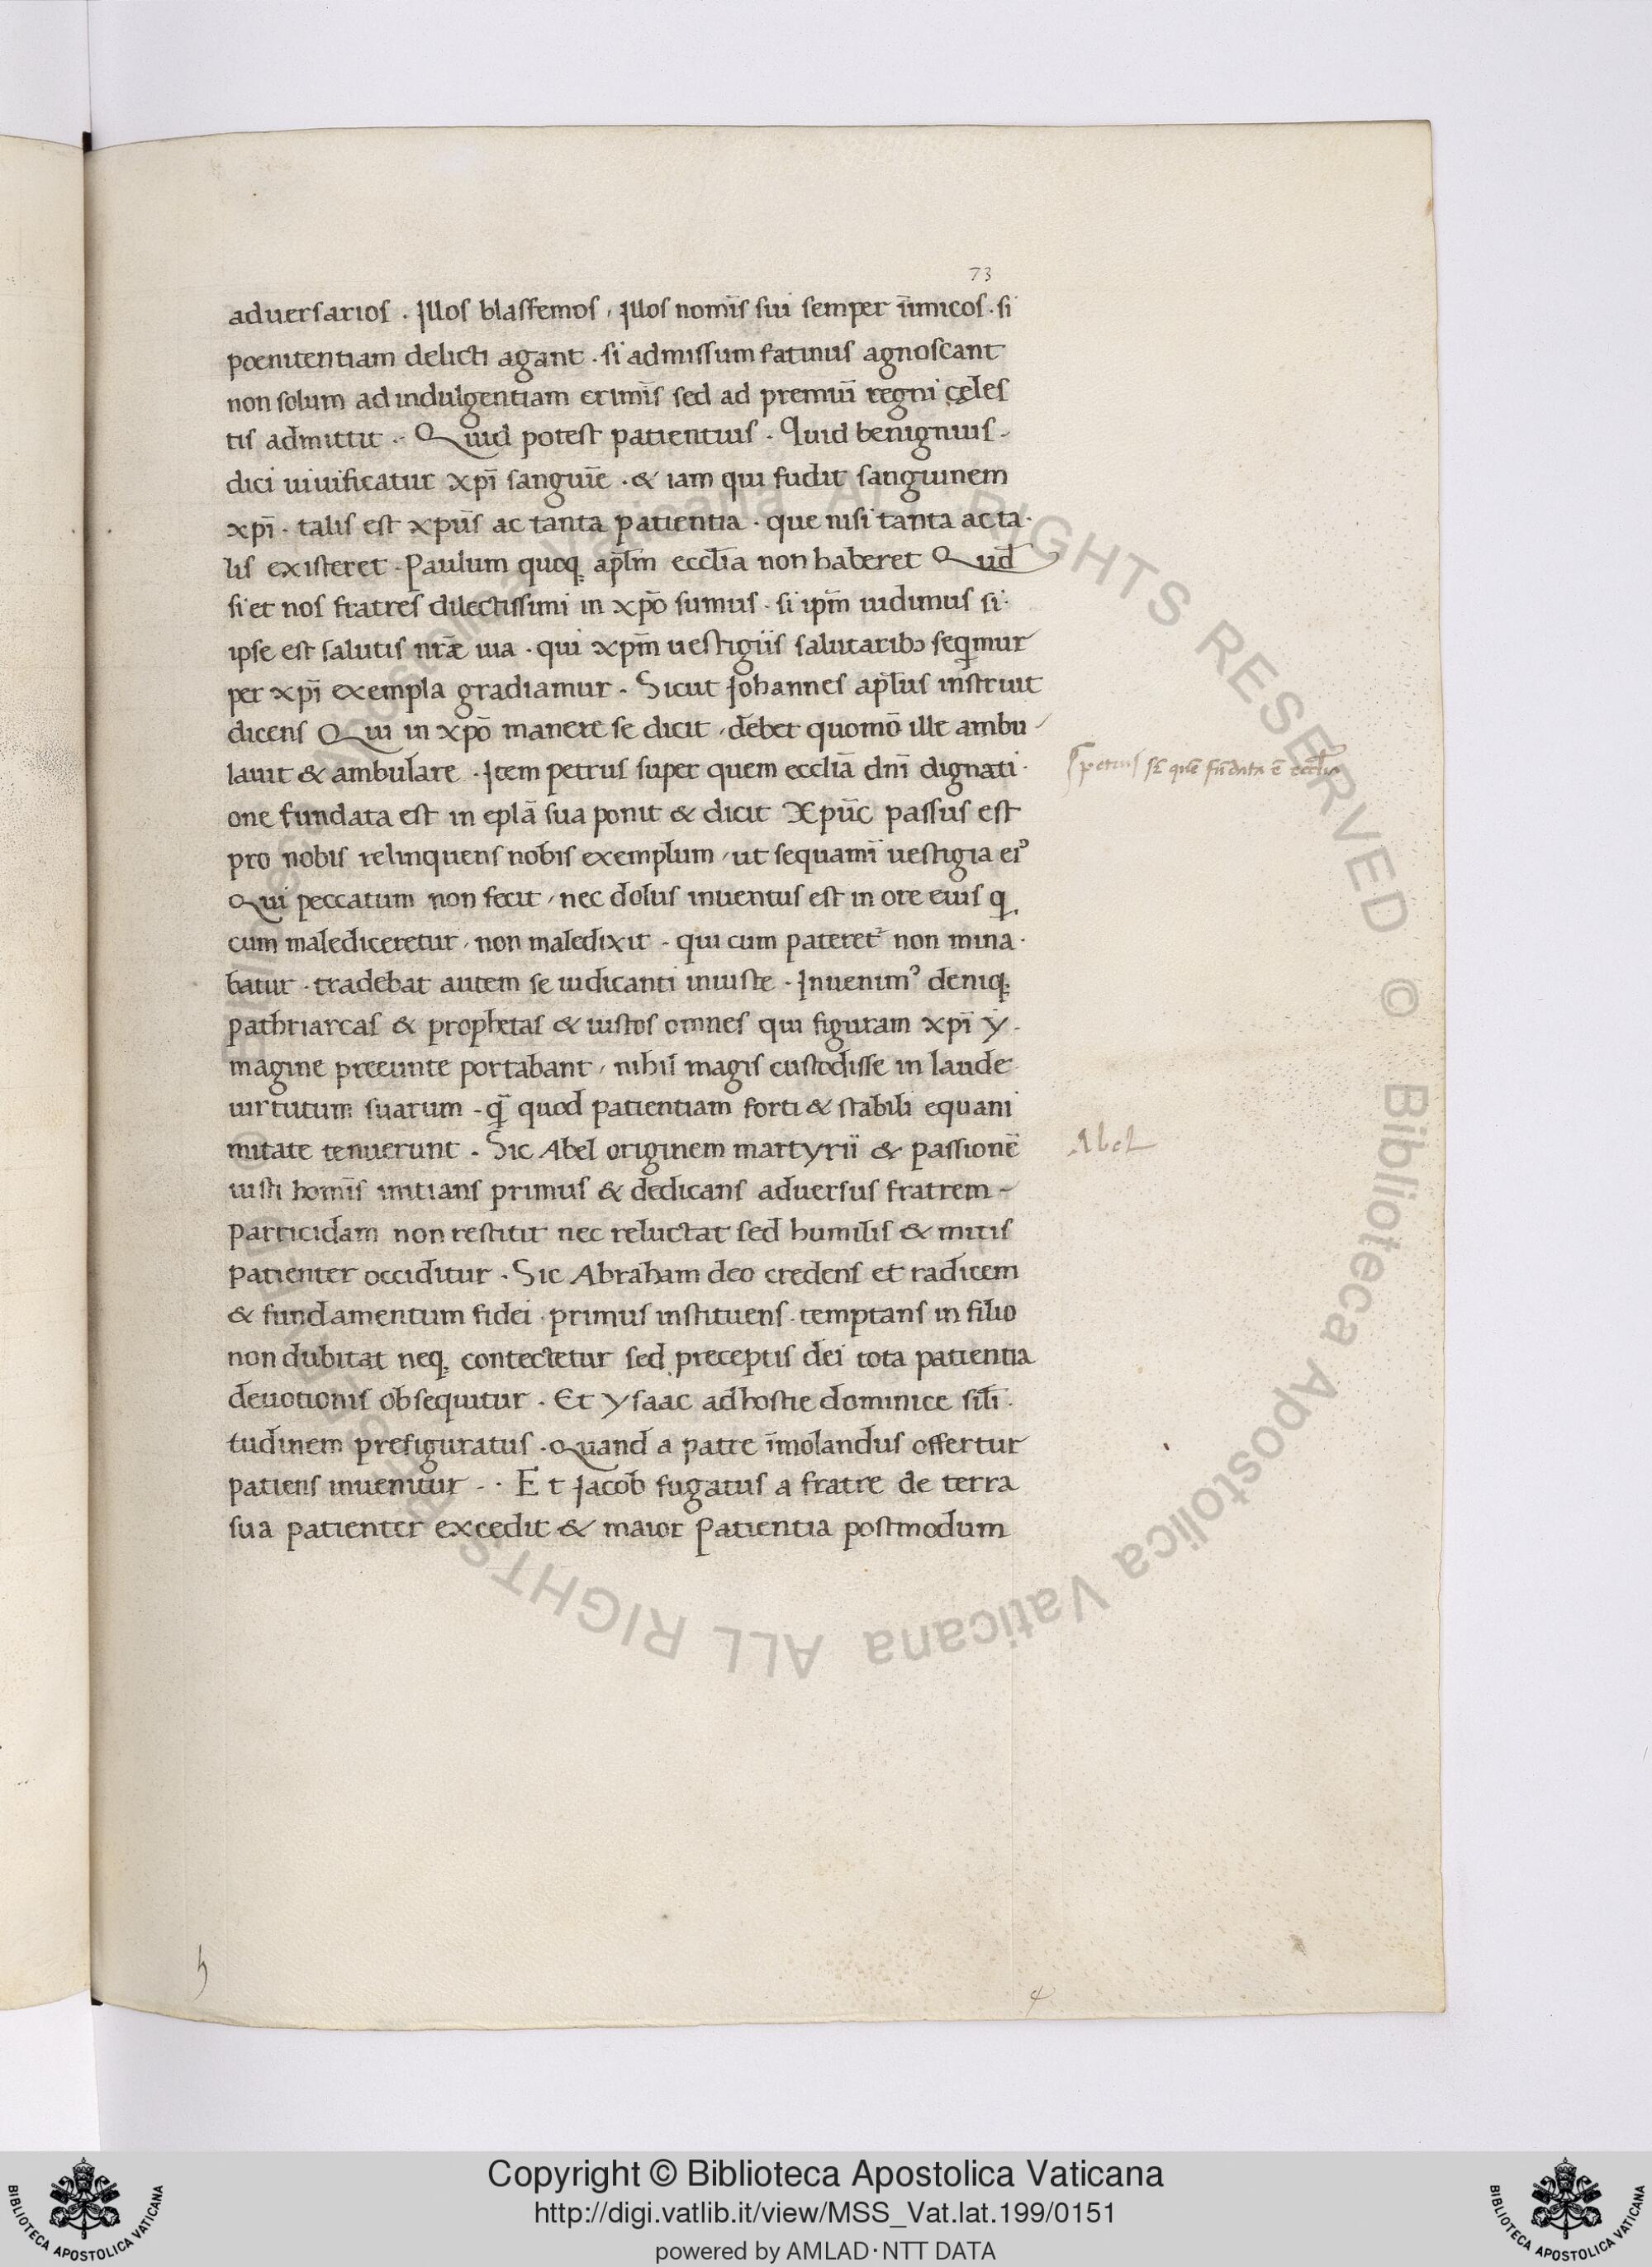 73
aduersarios . Illos blasfemos , Illos nomīs sui semper īimicos . si
poenitentiam delicti agant . si admissum fatinus agnoscant
non solum ad indulgentiam crimīs sed ad premiū regni çeles
tis admittit . Quid potest patientius . Quid benignius -
dici uiuificatur xpī sanguīe . & iam qui fudit sanguinem
xpī . talis est xpūs ac tanta patientia . que nisi tanta ac ta-
lis existeret . Paulum quoq; aplm̄ eccl̄ia non haberet Quid
si et nos fratres dilectissimi in xpō sumus . si ipm̄ iudimus si
ipse est salutis nr̄æ uia . qui xpm̄ uestigiis salutarib; seqimur
per xpī exempla gradiamur . Sicut Johannes apl̄us instruit
dicens Qui in xpō manere se dicit , debet quomō ille ambu
lauit & ambulare . Item petrus super quem eccliā dnī dignati
one fundata est in eplā sua ponit & dicit Xpūc passus est
pro nobis relinquens nobis exemplum , ut sequamī uestigia ei⁹
Qui peccatum non fecit , nec dolus inuentus est in ore eius q
cum malediceretur , non maledixit . qui cum pateret² non mina
batur . tradebat autem se iudicanti iniuste . Inuenim⁹ deniq;
pathriarcas & prophetas & iustos omnes qui figuram xpī y-
magine preeunte portabant , nihil magis custodisse in laude
uirtutum suarum - q̄ quod patientiam forti & stabili equani
mitate tenuerunt . Sic Abel originem martyrii & passionē
iusti homīs initians primus & dedicans aduersus fratrem -
parricidam non restitit nec reluctat sed humilis & mitis
patienter occiditur . Sic Abraham deo credens et radicem
& fundamentum fidei . primus instituens . temptans in filio
non dubitat neq; contectetur sed preceptis dei tota patientia
deuotionis obsequitur . Et ysaac ad hostie dominice sil̄i
tudinem prefiguratus . Quand a patre īmolandus offertur
patiens inuenitur - . Et Jacob fugatus a fratre de terra
sua patienter excedit & maior patientia postmodum
petrus sr̄ quē fūdata ē eccl̄ia
Abel
h
4
Copyright © Biblioteca Apostolica Vaticana
http://digi.vatlib.it/view/MSS_Vat.lat.199/0151
powered by AMLAD·NTT DATA
BIBLIOTECA APOSTOLICA VATICANA
BIBLIOTECA APOSTOLICA VATICANA